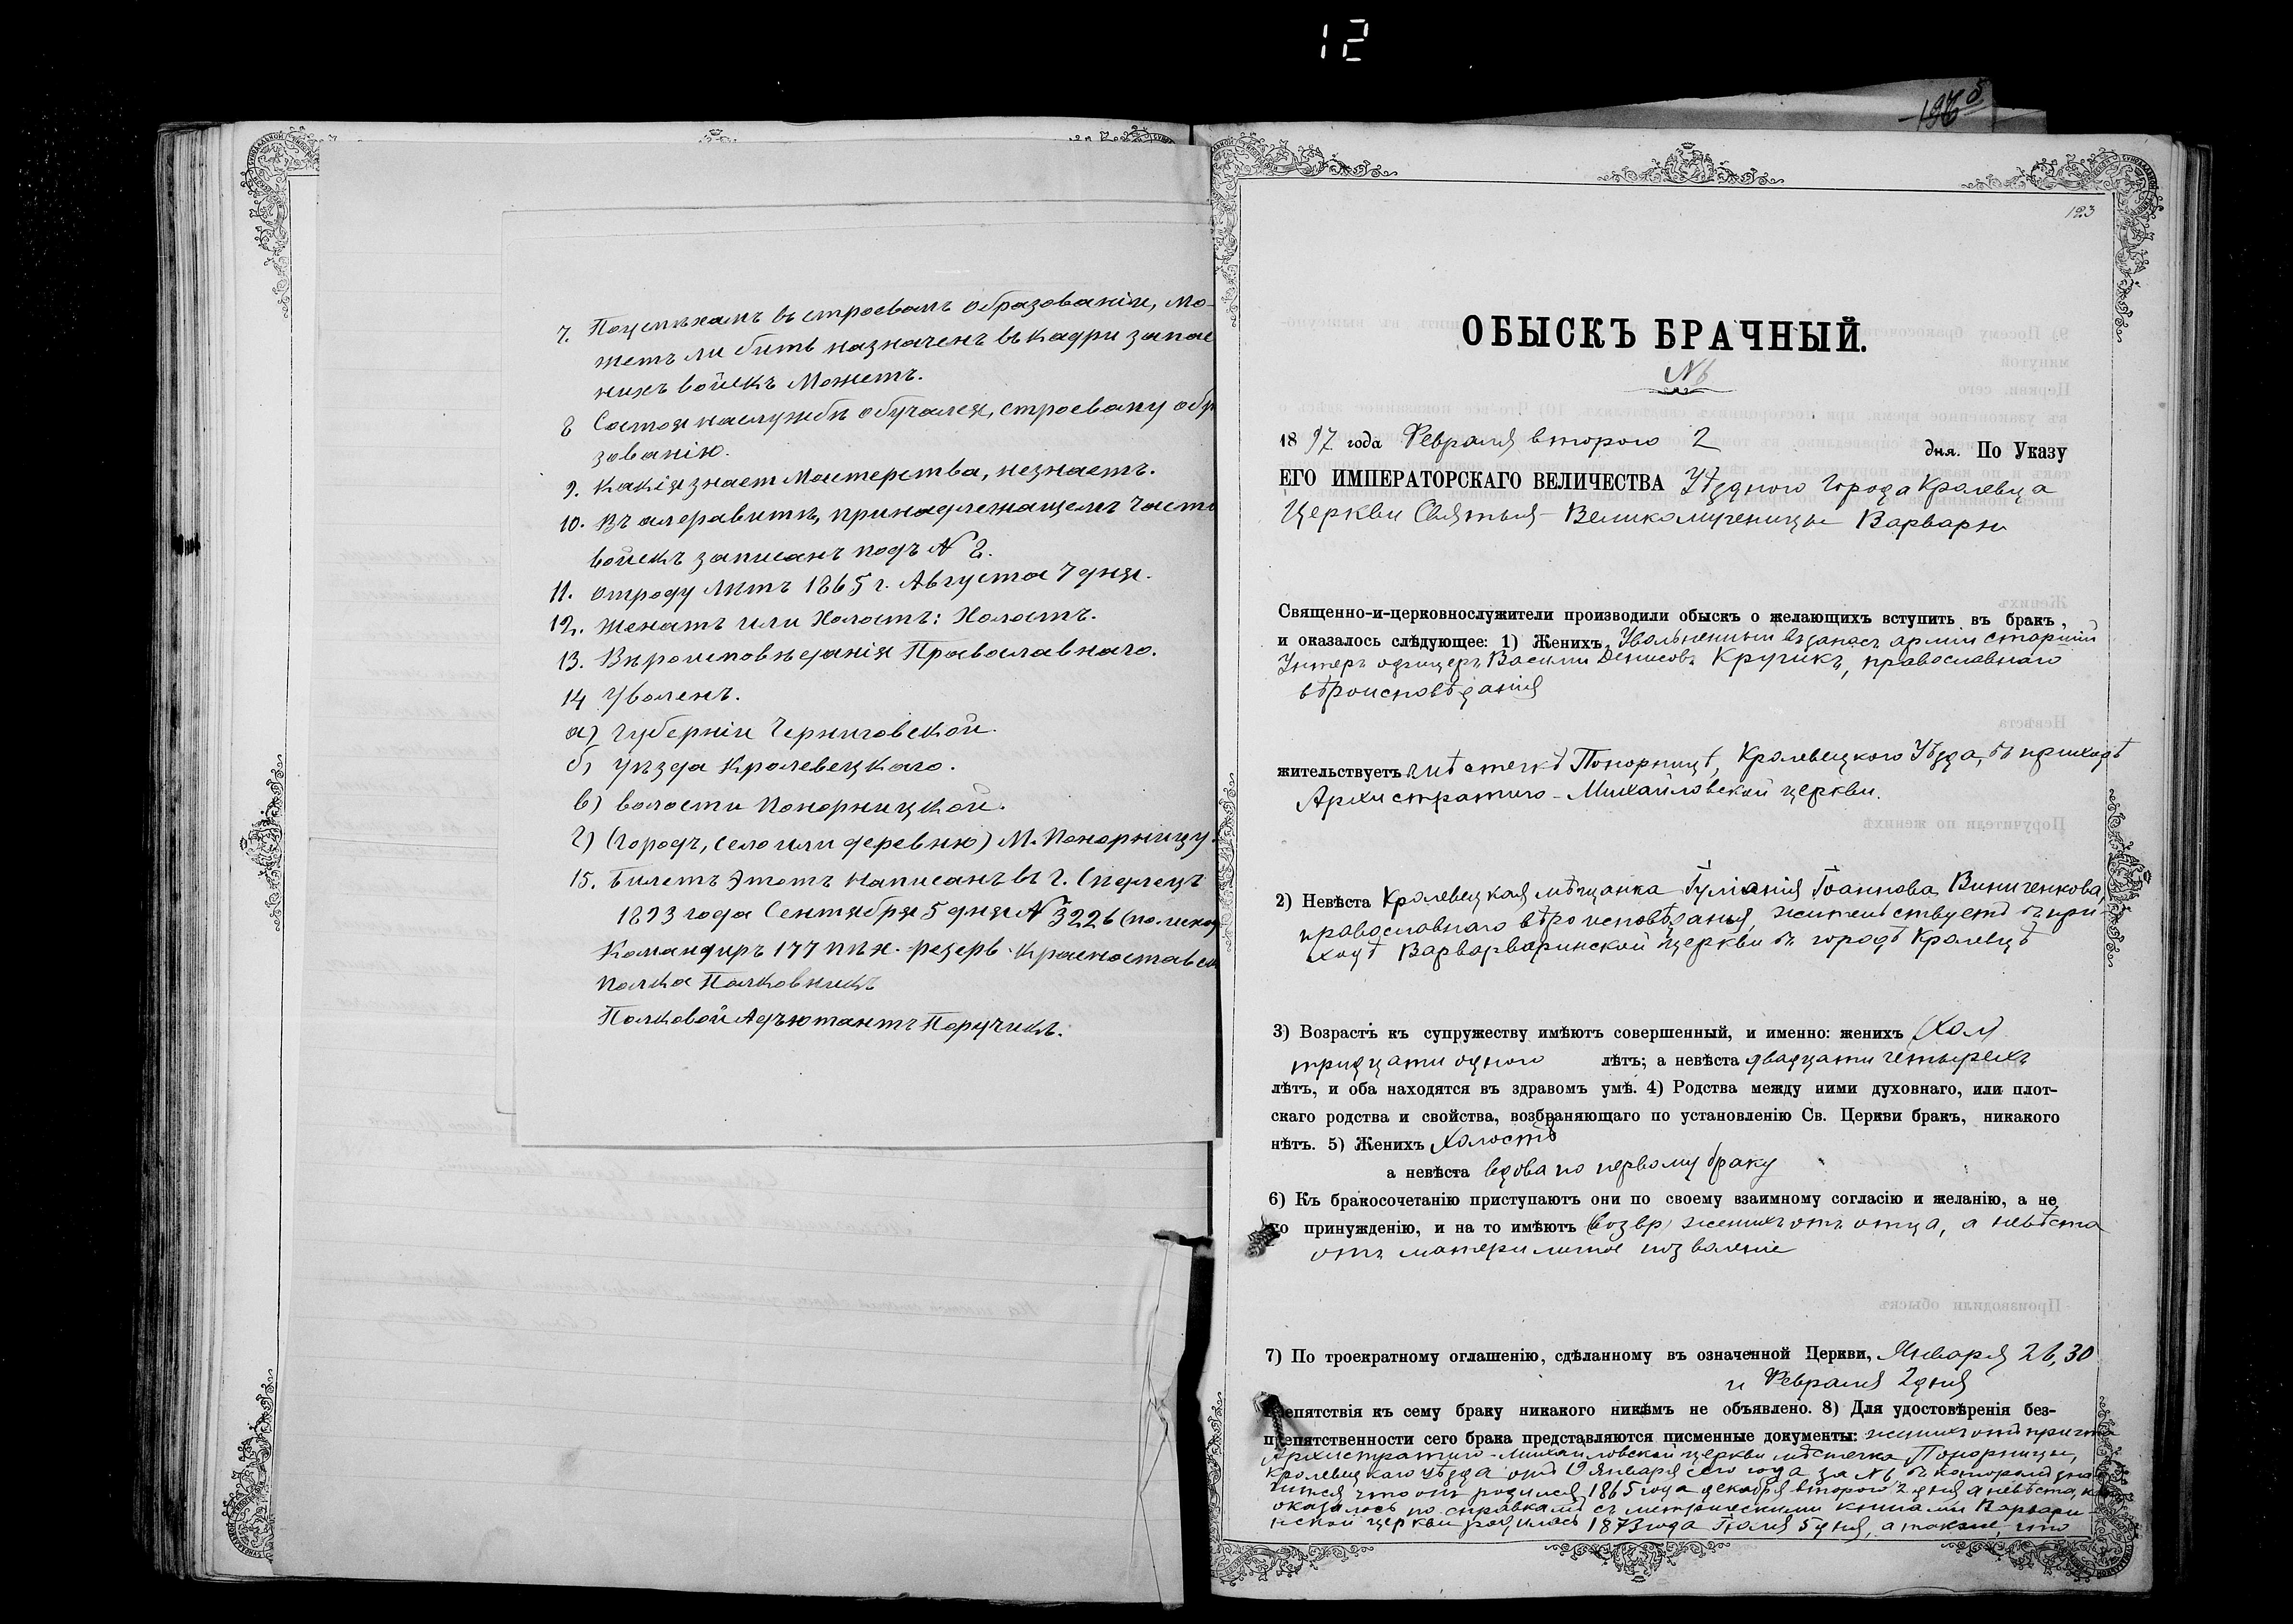 12
7. Поуспѣхамъ въ строевомъ образованіи, мо-
жетъ ли бить назначенъ въ кадри запас
нихъ войскъ Можетъ.
8 Состоя наслужбѣ обучался, строевому обр
зованію.
9. Какія знаетъ Мастерства, незнаетъ.
10. Въ алфавитѣ, принадлежащемъ части
войскъ записанъ подъ №2.
11. отроду лѣтъ 1865 г. Августа 7 дня.
12. Женатъ или Холостъ: Холостъ.
13. Вѣроисповѣданія Православнаго.
14 Уволенъ.
а) Губерніи Черниговской.
б) уѣзда Кролевецкаго.
в) волости Понорницкой.
г) (городъ, село или деревню) М. Понорницу.
15. Билетъ Этотъ Написанъ въ г.
1893 года Сентября 5 дня № 3226
Командиръ 177 пѣх. резерв. Красностав
полка Полковникъ
Полковой Адъютантъ Поручикъ.
123
ОБЫСКЪ БРАЧНЫЙ.
№
1897 года Февраля второго 2 дня. По Указу
ЕГО ИМПЕРАТОРСКАГО ВЕЛИЧЕСТВА Уѣздного города Кролевца
Церкви Святыя Великомученицы Варвары
Священно-и-церковнослужители производили обыскъ о желающихъ вступить въ бракъ,
и оказалось слѣдующее: 1) Женихъ Увольненный въ запасъ арміи старшій
Унтеръ офицеръ Василій Денисовъ Кругикъ, православнаго
вѣроисповѣданія
жительствуетъ мѣстечкѣ Понорницѣ, Кролевецкого Уѣзда, въ приходѣ
Архистратиго-Михайловской церкви.
2) Невѣста Кролевецкая мѣщанка Іуліанія Іоаннова Виниченкова,
православнаго вѣроисповѣданія, жительствуетъ въ при-
ходѣ Варварваринской церкви въ городѣ Кролевцѣ
3) Возрастъ къ супружеству имѣютъ совершенный, и именно: женихъ (Хол)
тридцати одного лѣтъ; а невѣста двадцати четырехъ
лѣтъ, и оба находятся въ здравомъ умѣ. 4) Родства между ними духовнаго, или плот-
скаго родства и свойства, возбраняющаго по установленію Св. Церкви бракъ, никакого
нѣтъ. 5) Женихъ Холостъ
а невѣста вдова по первому браку
6) Къ бракосочетанію приступаютъ они по своему взаимному согласію и желанію, а не
по принужденію, и на то имѣютъ (возвр) женихъ отъ отца, а невѣста
отъ матери личное позволеніе
7) По троекратному оглашенію, сдѣланному въ означенной Церкви, Января 26, 30
и Февраля 2 дня
препятствія къ сему браку никакого никѣмъ не объявлено. 8) Для удостовѣренія без-
препятственности сего брака представляются писменные документы: женихъ отъ причта
Архистратиго-Михайловской церкви мѣстечка Понорницы,
Кролевецкаго уѣзда отъ Января сего года за №6 въ которомъ
что онъ родился 1865 года декабря второго 2 дня а невѣста,
оказалось по справкамъ съ метрическими книгами Варвари-
нской церкви родилась 1873 года Іюля 5 дня, а также, что